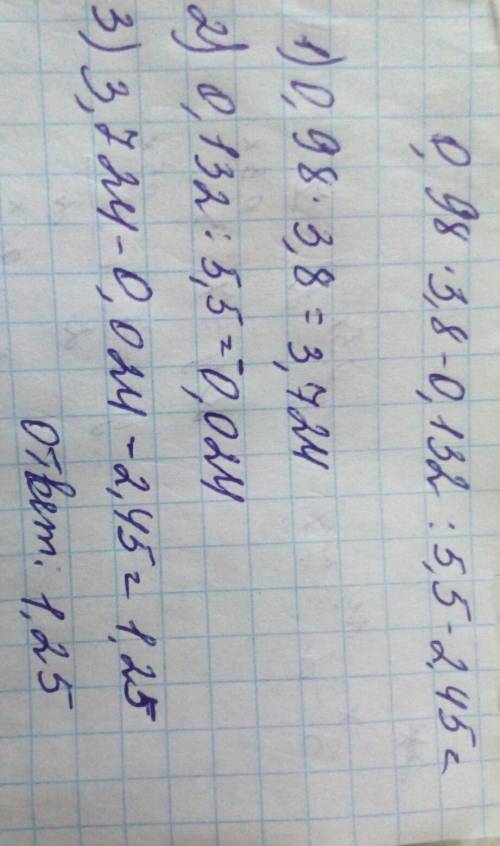 0,98·3,8-0,132:5,5-2,45=
1) 0,98·3,8=3,724
2) 0,132:5,5=0,024
3) 3,724-0,024-2,45=1,25
Ответ: 1,25